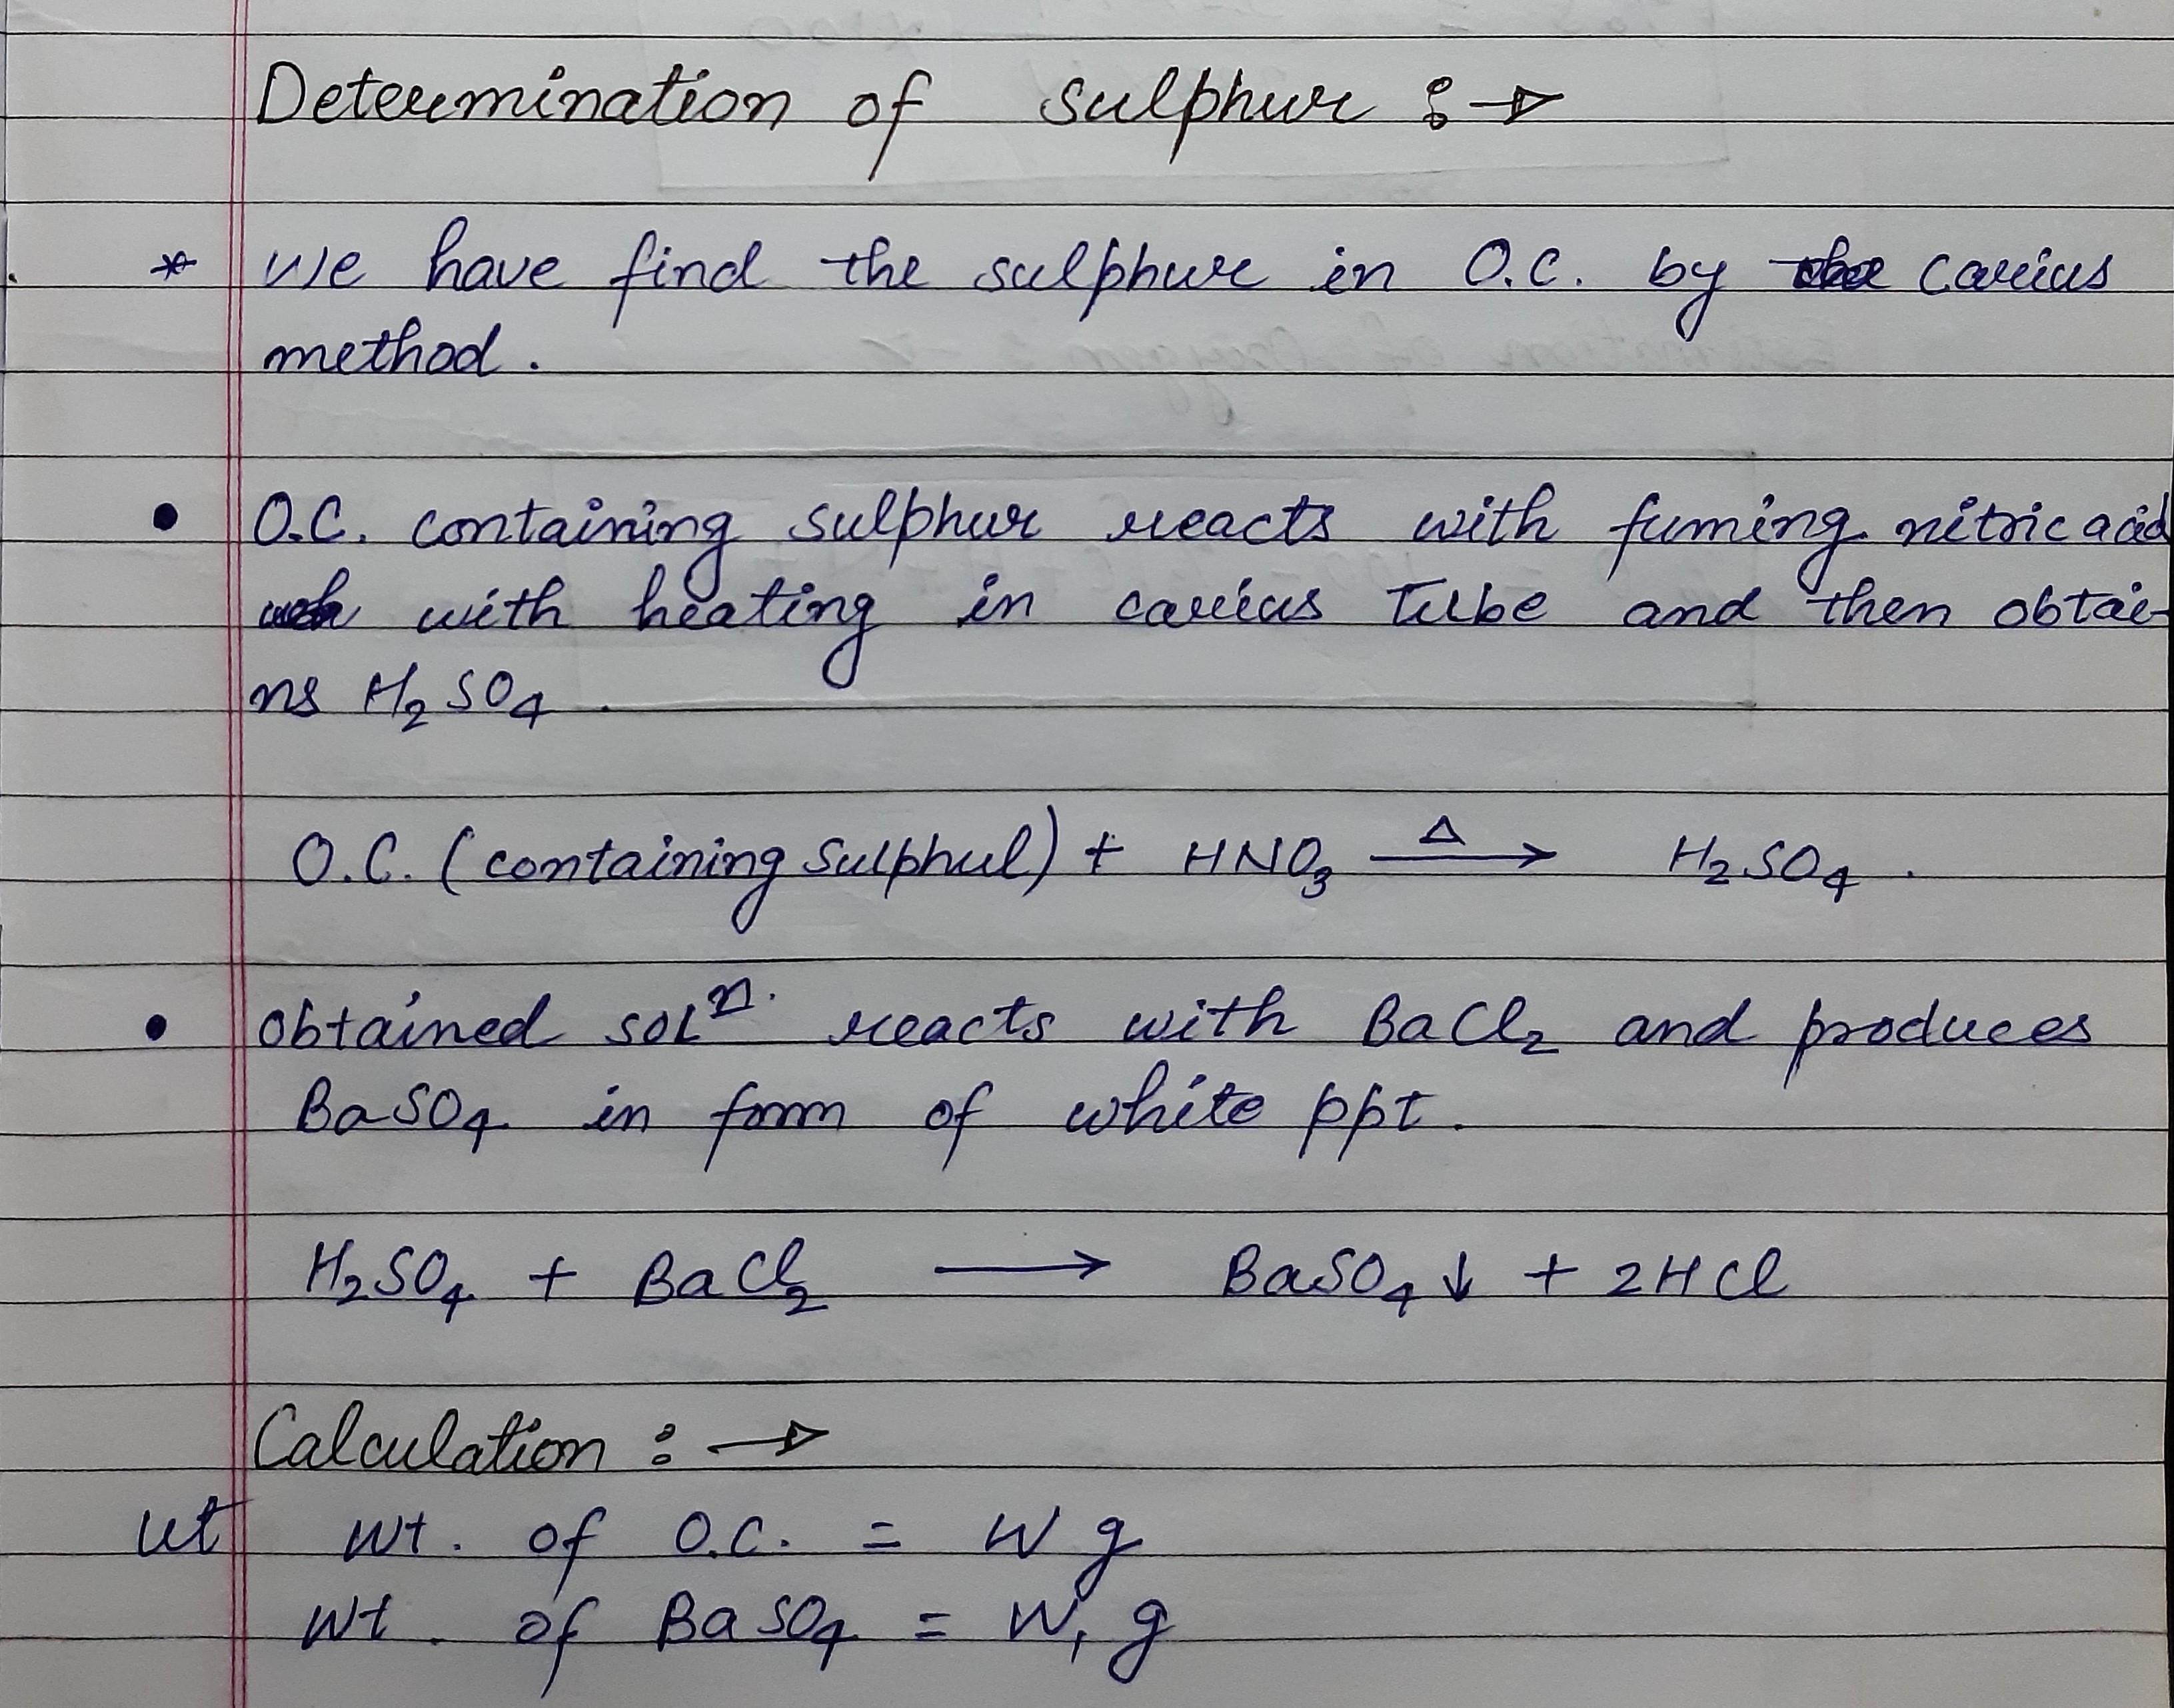 Determination of sulphur :→
* We have find the sulphur in O.C. by carius
method.
• O.C. containing sulphur reacts with fuming nitric acid
with heating in carius Tube and then obtai-
ns H₂SO₄.
O.C. (containing sulphul) + HNO₃ —Δ→ H₂SO₄.
• obtained solⁿ. reacts with BaCl₂ and produces
BaSO₄ in form of white ppt.
H₂SO₄ + BaCl₂ ⟶ BaSO₄↓ + 2HCl
Calculation :→
let wt. of O.C. = W g
wt. of BaSO₄ = W₁ g